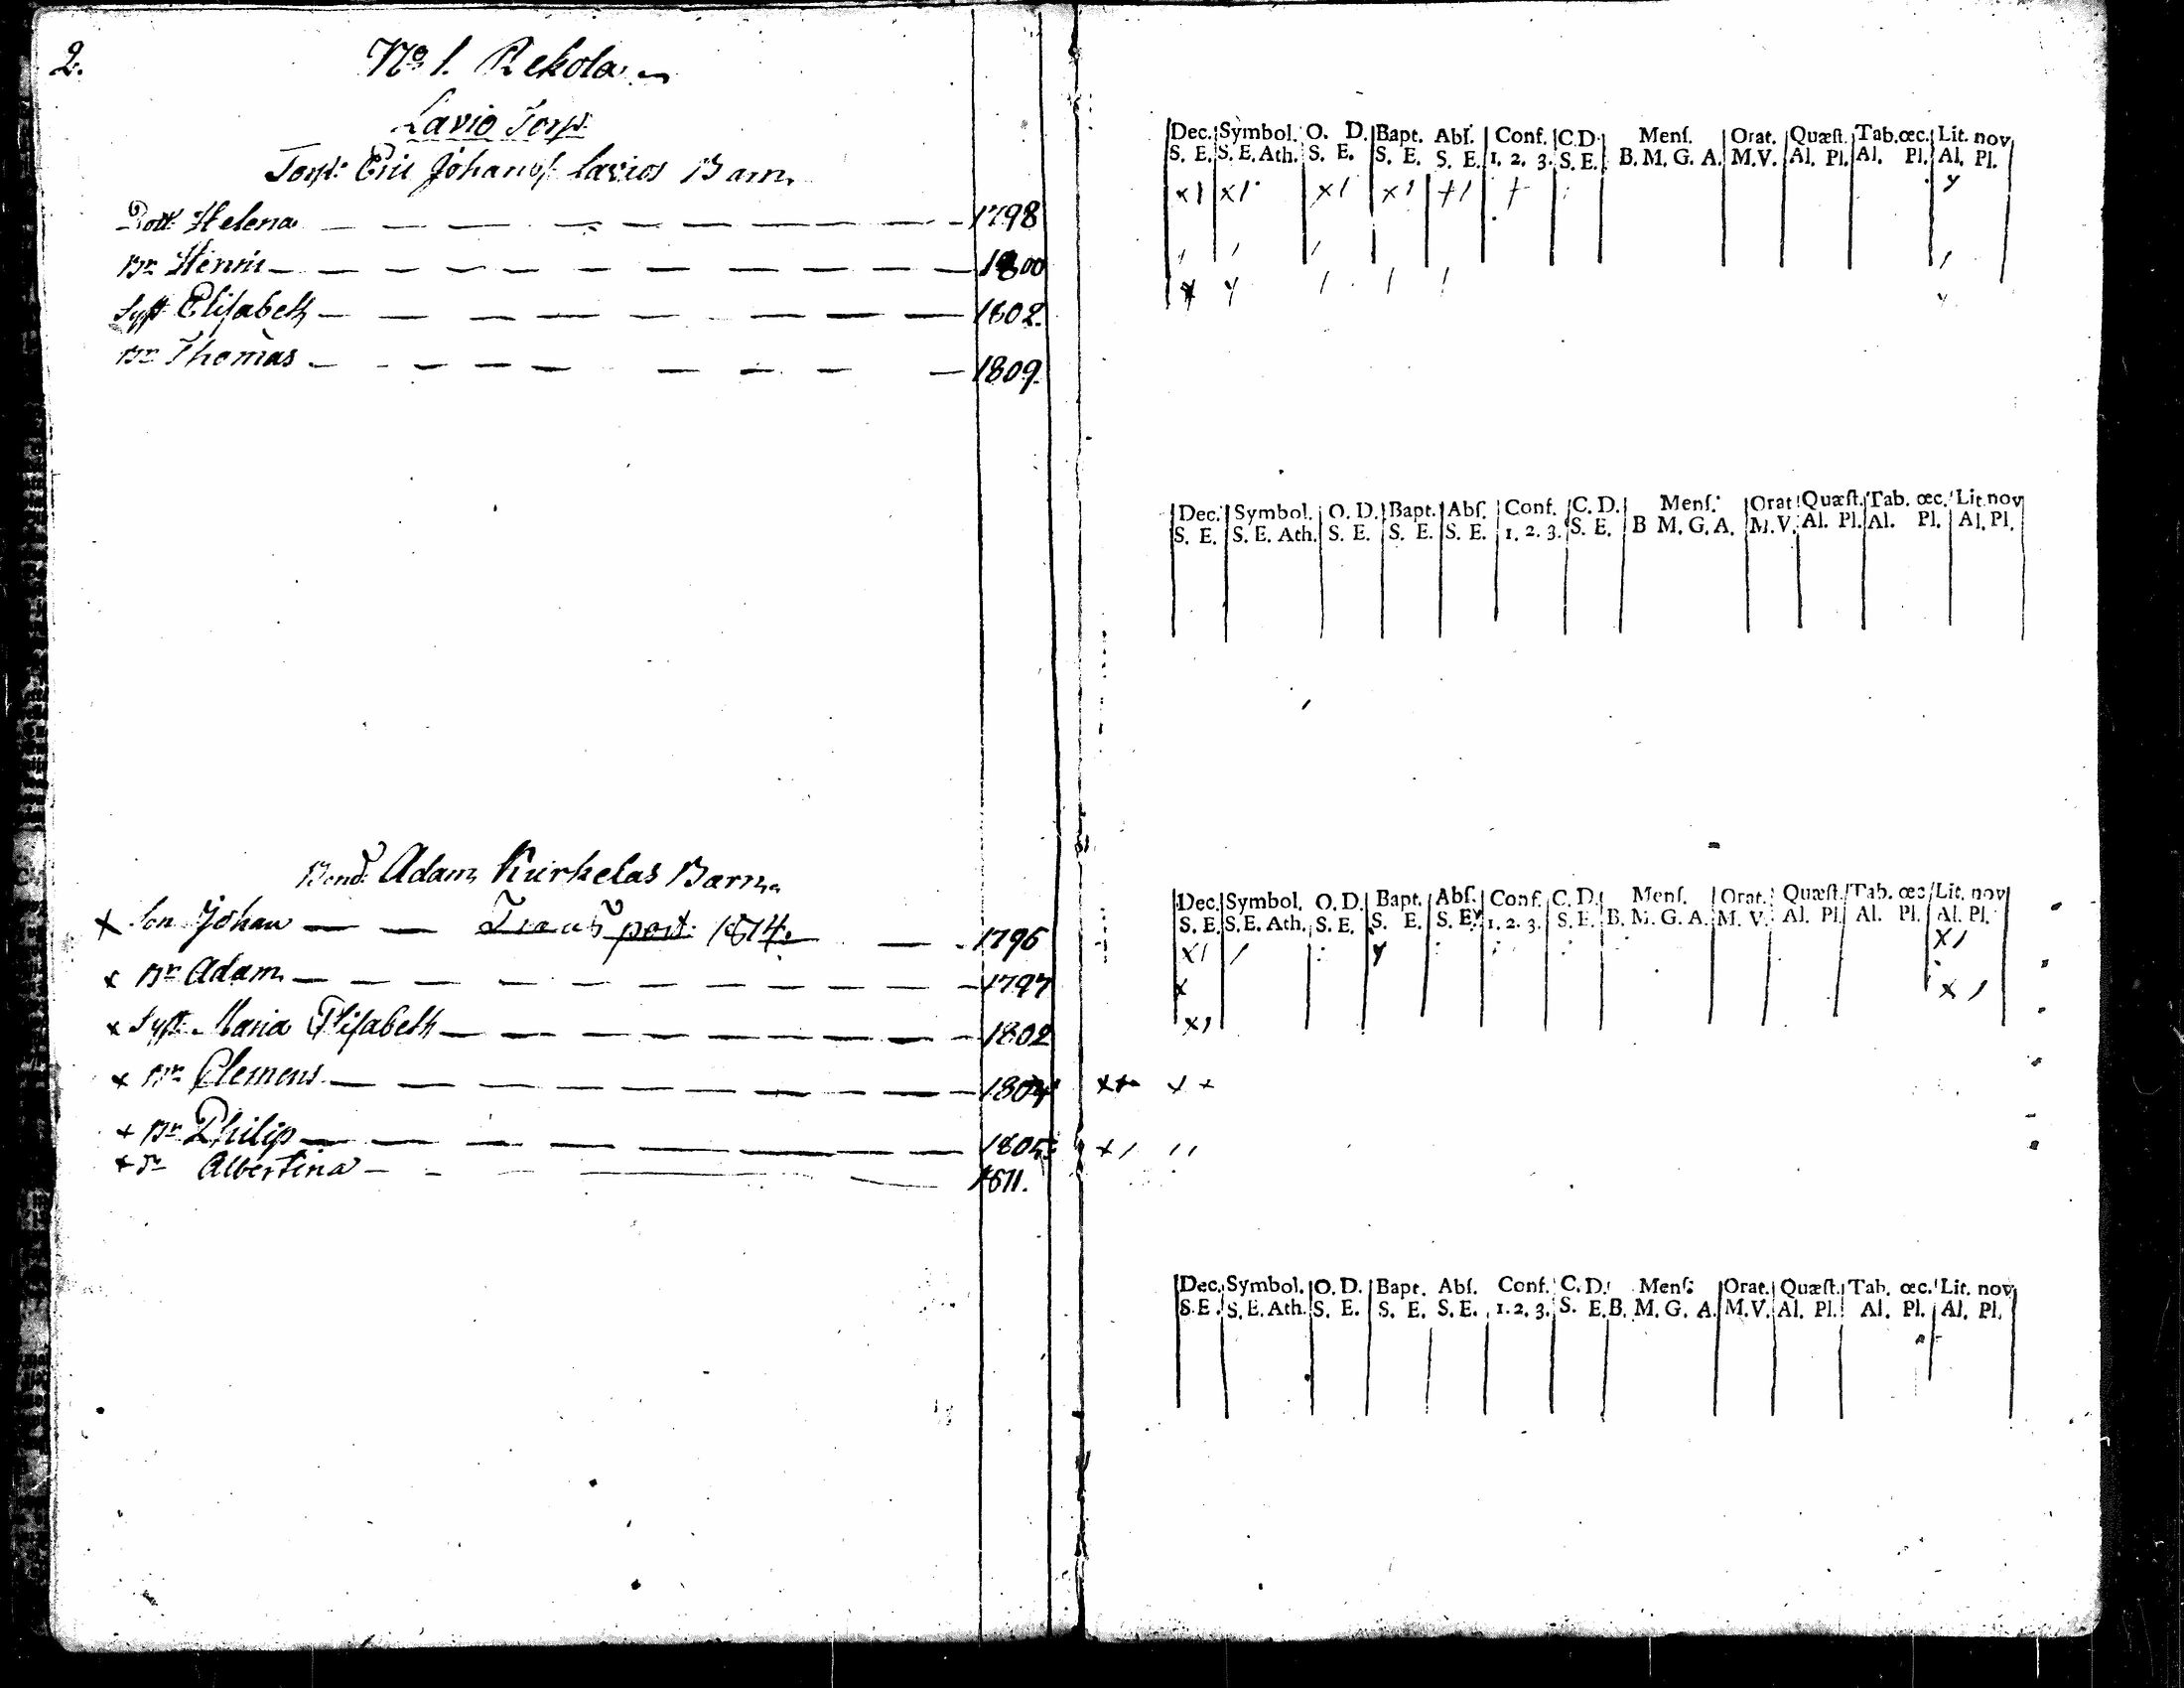 2.
No 1. Rekola
Lavio Torp
Torp: Eric Johans: Lavios Barn
Dott: Helena — 1798
Br: Henric — 1800
Syst Elisabeth — 1802
Br: Thomas — 1809
Bond: Adam Kurkelas Barn
x Son Johan — Transport 1814 — 1796
x Br Adam — 1797
x Syst Maria Elisabeth — 1802
x Br Clemens — 1804
+ Br Philip — 1805
+ Sr Albertina — 1811.
Dec. Symbol. O. D. Bapt. Abſ. Conf. C.D. Menſ. Orat. Quæſt. Tab.œc. Lit. nov
S. E. S. E. Ath. S. E. S. E. S. E. 1. 2. 3. S. E. B. M. G. A. M.V. Al. Pl. Al. Pl. Al. Pl.
x1 x1 x1 x1 +1 + y
/ / / /
x y / / / y
Dec. Symbol. O. D. Bapt. Abſ. Conf. C. D. Menſ. Orat Quæſt. Tab. œc. Lit. nov
S. E. S. E. Ath. S. E. S. E. S. E. 1. 2. 3. S. E. B M. G. A. M.V. Al. Pl. Al. Pl. Al. Pl.
Dec. Symbol. O. D. Bapt. Abſ. Conf. C. D. Menſ. Orat. Quæſt. Tab. œc Lit. nov
S. E. S. E. Ath. S. E. S. E. S. E. 1. 2. 3. S. E. B. M. G. A. M. V. Al. Pl. Al. Pl. Al. Pl.
x1 / y x1
x x /
x1
x+ x +
x / / /
Dec. Symbol. O. D. Bapt. Abſ. Conf. C. D. Menſ: Orat. Quæſt. Tab. œc. Lit. nov
S. E. S. E. Ath. S. E. S. E. S. E. 1. 2. 3. S. E. B. M. G. A. M.V. Al. Pl. Al. Pl. Al. Pl.